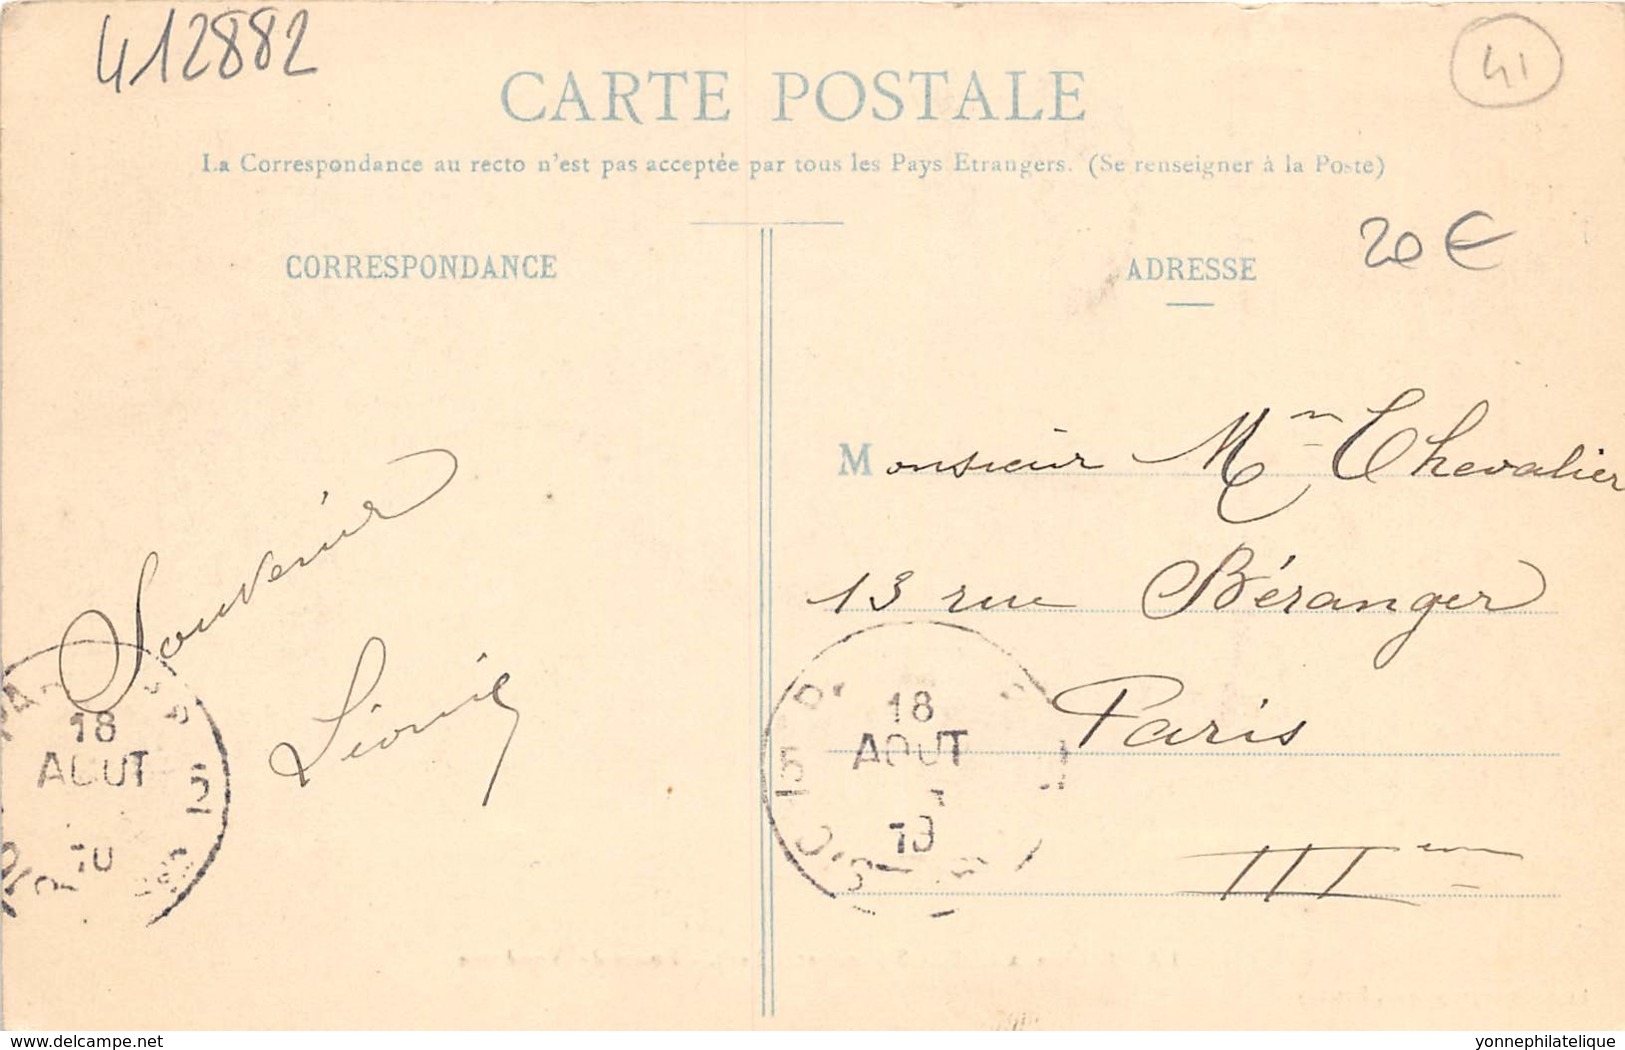 412882
41
CARTE POSTALE
La Correspondance au recto n'est pas acceptée par tous les Pays Etrangers. (Se renseigner à la Poste)
CORRESPONDANCE
ADRESSE
20 €
Souvenir
Léonie
Monsieur Mn Chevalier
13 rue Béranger
Paris
IIIem
18
AOUT
10
18
AOUT
10
delcampe.net
yonnephilatelique